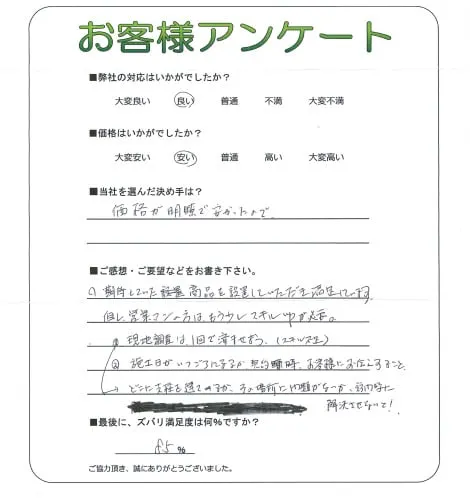 お客様アンケート
■弊社の対応はいかがでしたか？
大変良い 良い 普通 不満 大変不満
■価格はいかがでしたか？
大変安い 安い 普通 高い 大変高い
■当社を選んだ決め手は？
価格が明瞭で安かったので
■ご感想・ご要望などをお書き下さい。
期待していた設置商品を設置していただき満足しています。
但し営業マンの方はもう少しスキルupが必要。
現地調査は1回で済ませよう。
② 施工日がいつごろになるか 契約時、お客様にお伝えすること
どこに支柱を建てるか、その場所に問題がないか、
解決させないと！
■最後に、ズバリ満足度は何%ですか？
85%
ご協力頂き、誠にありがとうございました。